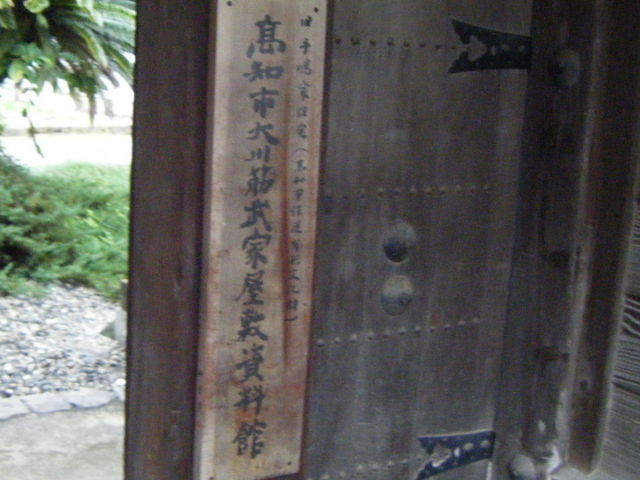 旧手嶋家住宅(高知市保護有形文化財)
高知市大川筋武家屋敷資料館